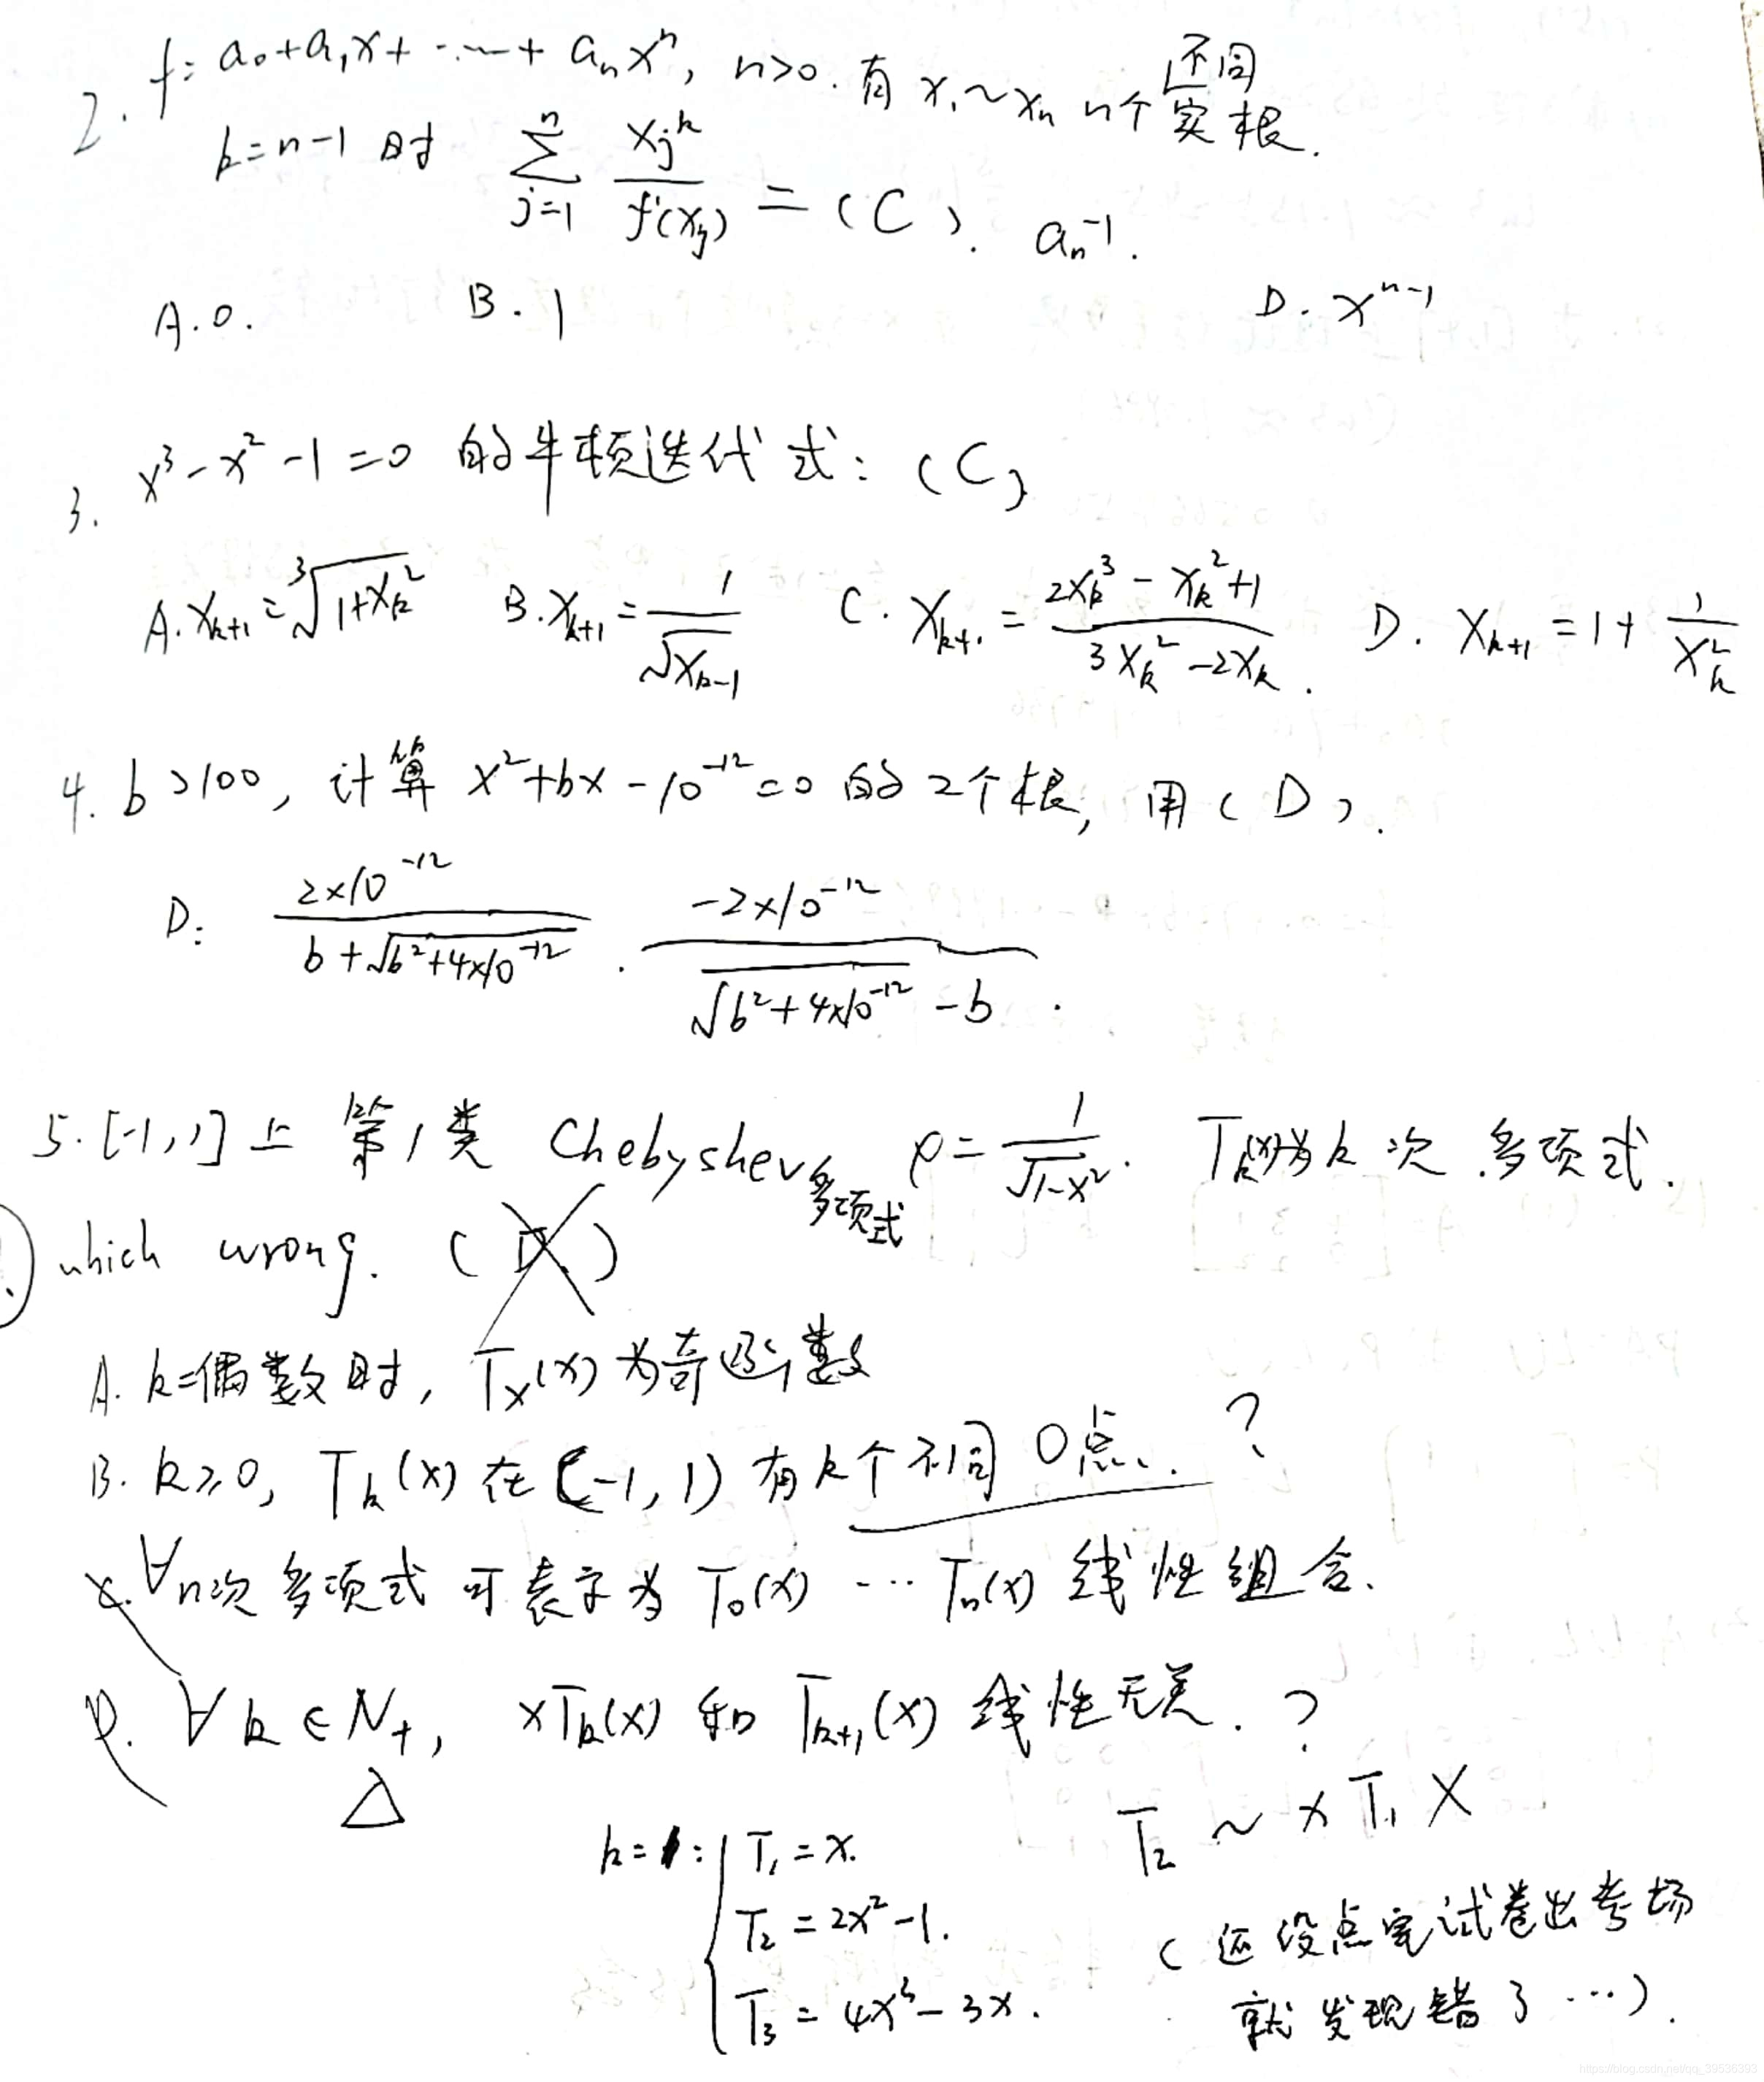 2. f = a₀+a₁x+ ······ + aₙxⁿ, n>0. 有 x₁~xₙ n个不同实根.
k=n-1 时 \sum_{j=1}^{n} \frac{x_j^k}{f'(x_j)} = ( C ). aₙ⁻¹.
A. 0. B. 1 D. xⁿ⁻¹
3. x³-x²-1=0 的牛顿迭代式: ( C )
A. x_{k+1} = \sqrt[3]{1+x_k^2} B. x_{k+1} = \frac{1}{\sqrt{x_{k-1}}} C. x_{k+1} = \frac{2x_k^3-x_k^2+1}{3x_k^2-2x_k}. D. x_{k+1} = 1+\frac{1}{x_k^2}
4. b>100, 计算 x²+bx-10⁻¹²=0 的2个根, 用 ( D ).
D: \frac{2×10^{-12}}{b+\sqrt{b^2+4×10^{-12}}} . \frac{-2×10^{-12}}{\sqrt{b^2+4×10^{-12}}-b} .
5. [-1,1]上 第1类 Chebyshev多项式 ρ=\frac{1}{\sqrt{1-x^2}}. T_k(x)为k次多项式.
which wrong. ( D )
A. k=偶数时, Tₓ(x)为奇函数
B. k≥0, T_k(x) 在 (-1,1) 有k个不同 0点. ?
C. ∀n次多项式 可表示为 T₀(x) ··· Tₙ(x) 线性组合.
D. ∀k∈N₊, xT_k(x) 和 T_{k+1}(x) 线性无关. ?
△
T₂ ~ xT₁ X
k=1: T₁=x.
T₂=2x²-1.
T₃=4x³-3x.
( 还没点完试卷出考场
就发现错了 ···).
https://blog.csdn.net/qq_39536393